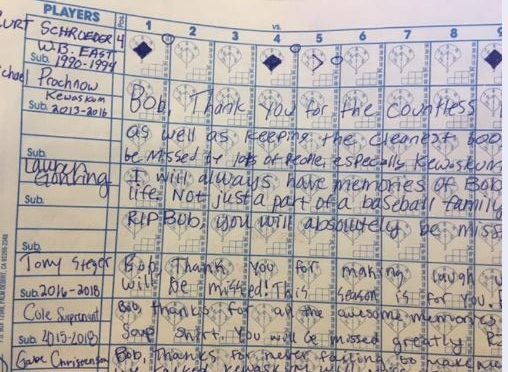 PLAYERS Pos. 1 2 3 4 5 6 7 8 9
vs.
KURT SCHROEDER 4
W.B. EAST
Sub. 1990-1994
Michael Prochnow
Kewaskum
Sub. 2013-2016
Bob, Thank you for the countless
as well as keeping the cleanest boo
be missed by lots of people, especially Kewaskum
Lauren
Sub.
I will always have memories of Bob
life. Not just a part of a baseball family
Sub.
RIP Bob, you will absolutely be miss
Tony Steger Bob, Thank you for making laugh
Sub. 2016-2018 will be missed! This season is for you,
Cole Bob, thanks for all the awesome memories
Sub. 2015-2018 shirt. You will be missed greatly
Gabe Christenson Bob, Thanks for never failing to make me
Kewaskum will miss